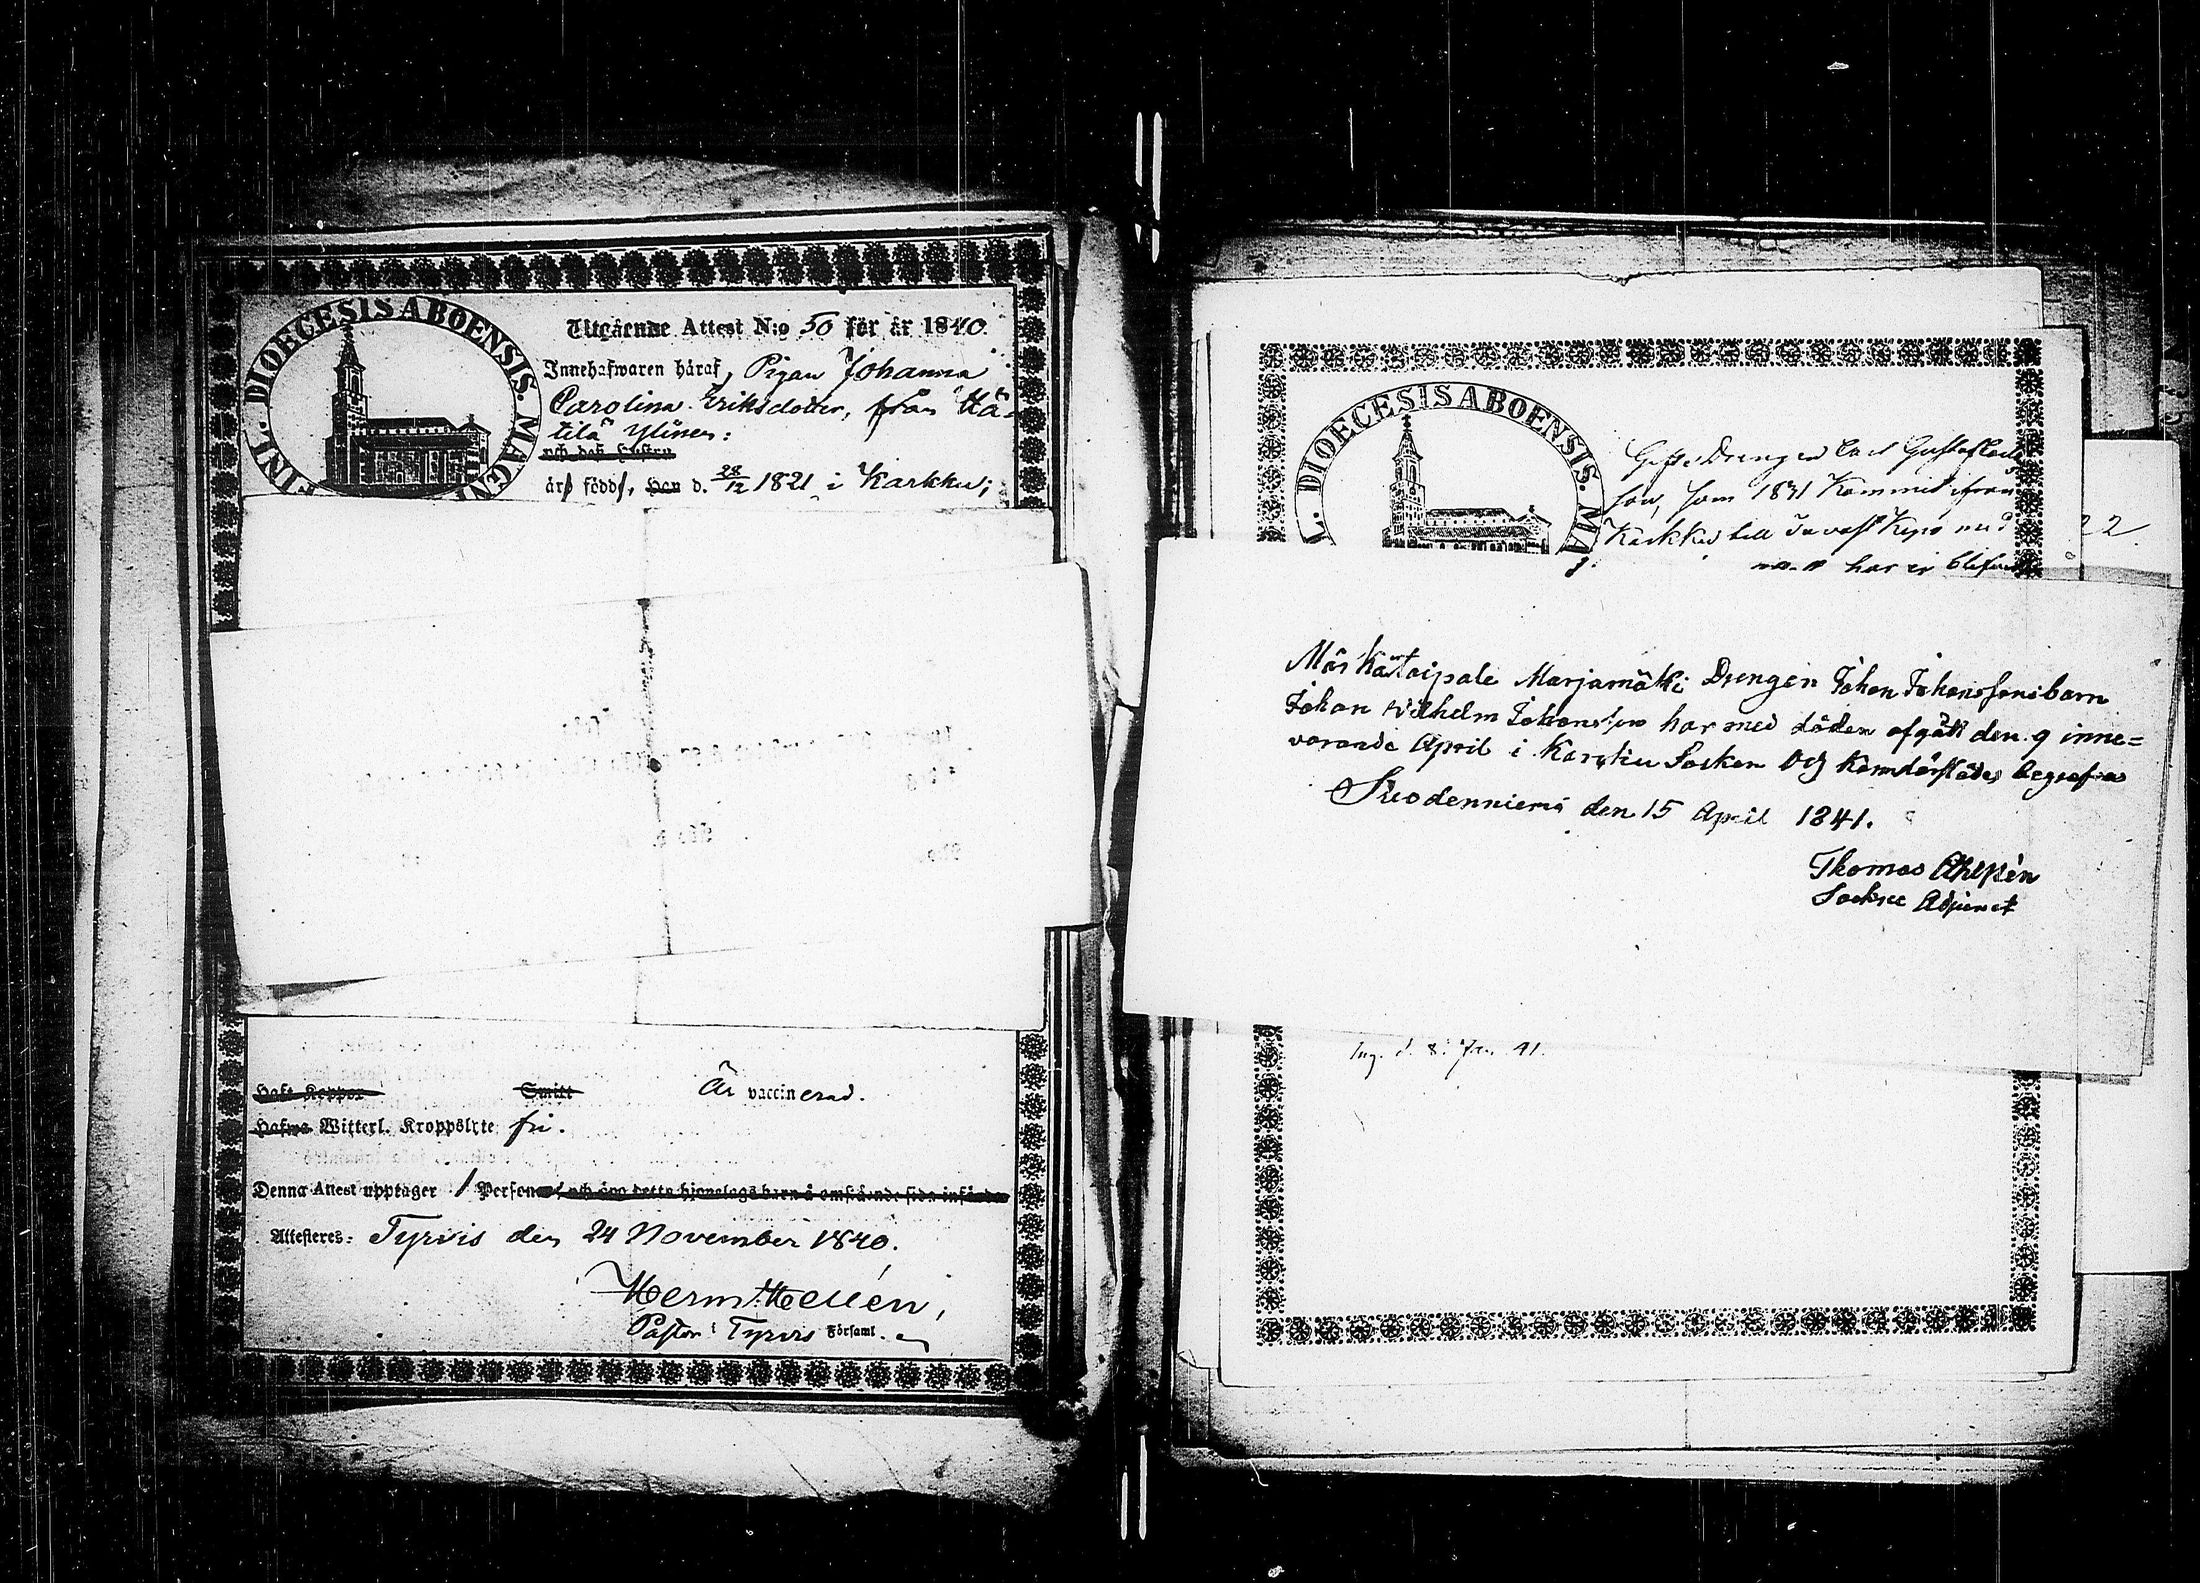 DIOECESIS ABOENSIS. MAGNI
FINL.
Utgående Attest N:o 50 för år 1840.
Innehafwaren häraf, Pigan Johanna
Carolina Eriksdotter, från Hä-
tilä Ylinen:
och dess Hustru
är född, Han d. 28/12 1821 i Karkku;
Haft Koppor Smitt Är vaccinerad.
Hafwa Witterl. Kroppslyte fri.
Denna Attest upptager 1 Personer, och äro detta hjonelags barn å omstående sida införde
Attesteras: Tyrvis den 24 November 1840.
Herm: Hellén,
Pastor i Tyrvis Församl.
DIOECESIS ABOENSIS. MA
L.
Gifte Drengen Carl Gustaf
son, som 1831 Kommit ifrån
Karkku till
har ej blifvit
22
Johan Johanssons barn
Johan Wilhelm Johansson har med döden afgått den 9 inne=
varande April i Karkku Socken och
Suodenniemi den 15 April 1841.
Thomas
Adjunct
Ing. d. 8: Jan. 41.